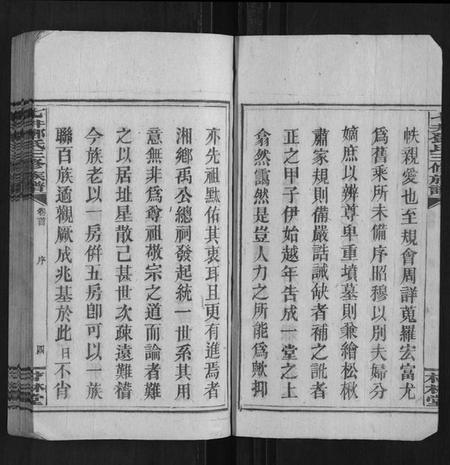 帙親愛也至規會周詳蒐羅宏富尤
為舊乘所未備序昭穆以別夫婦分
嫡庶以辨尊卑重墳墓則兼繪松楸
肅家規則備嚴詰誡缺者補之訛者
正之甲子伊始越年告成一堂之上
翕然藹然是豈人力之所能為歟抑
亦先祖默佑其衷耳且更有進焉者
湘鄉禹公總祠發起統一世系其用
意無非為尊祖敬宗之道而論者難
之以居址星散已甚世次疎遠難揩
今族老以一房併五房卽可以一族
聯百族遹觀厥成兆基於此日不肖
七井鄧氏三修族譜
卷首
序
四